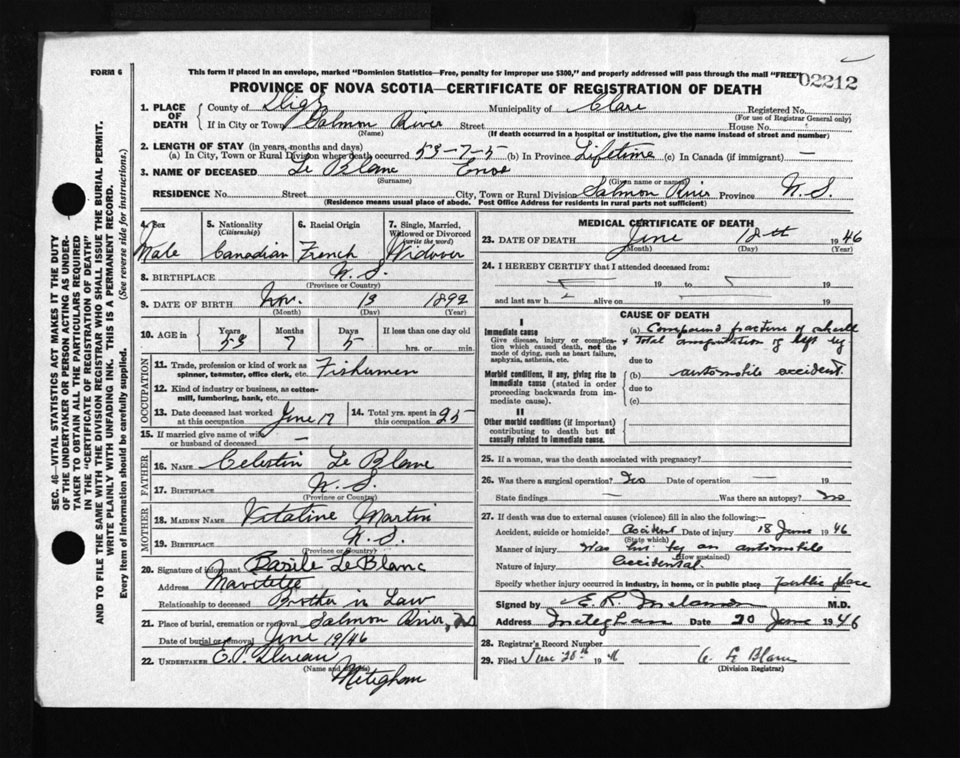 FORM 6
This form if placed in an envelope, marked "Dominion Statistics—Free, penalty for improper use $300," and properly addressed will pass through the mail "FREE"
02212
PROVINCE OF NOVA SCOTIA—CERTIFICATE OF REGISTRATION OF DEATH
1. PLACE OF DEATH
County of Digby Municipality of Clare Registered No.
(For use of Registrar General only)
If in City or Town Salmon River Street House No.
(Name) (If death occurred in a hospital or institution, give the name instead of street and number)
2. LENGTH OF STAY (in years, months and days)
(a) In City, Town or Rural Division where death occurred 53-7-5 (b) In Province Lifetime (c) In Canada (if immigrant) —
3. NAME OF DECEASED Le Blanc Enos
(Surname) (Given name or names)
RESIDENCE No. Street City, Town or Rural Division Salmon River Province N.S.
(Residence means usual place of abode. Post Office Address for residents in rural parts not sufficient)
4. Sex
Male
5. Nationality
(Citizenship)
Canadian
6. Racial Origin
French
7. Single, Married, Widowed or Divorced
(write the word)
Widower
8. BIRTHPLACE N.S.
(Province or Country)
9. DATE OF BIRTH Nov. 13 1892
(Month) (Day) (Year)
10. AGE in
Years 53
Months 7
Days 5
If less than one day old
hrs. or min.
OCCUPATION
11. Trade, profession or kind of work as spinner, teamster, office clerk, etc. Fisherman
12. Kind of industry or business, as cotton-mill, lumbering, bank, etc.
13. Date deceased last worked at this occupation June 17
14. Total yrs. spent in this occupation 25
15. If married give name of wife or husband of deceased —
FATHER
16. NAME Celestin Le Blanc
17. BIRTHPLACE N.S.
(Province or Country)
MOTHER
18. MAIDEN NAME Vitaline Martin
19. BIRTHPLACE N.S.
(Province or Country)
20. Signature of informant Basile LeBlanc
Address Mavilette
Relationship to deceased Brother in Law
21. Place of burial, cremation or removal Salmon River, N.S
Date of burial or removal June 19/46
22. UNDERTAKER
(Name and address)
Meteghan
MEDICAL CERTIFICATE OF DEATH
23. DATE OF DEATH June 18th 1946
(Month) (Day) (Year)
24. I HEREBY CERTIFY that I attended deceased from:
19 to 19
and last saw h alive on 19
CAUSE OF DEATH
I
Immediate cause
Give disease, injury or complication which caused death, not the mode of dying, such as heart failure, asphyxia, asthenia, etc.
(a) Compound fracture of skull
& Total amputation of left leg
due to
Morbid conditions, if any, giving rise to immediate cause (stated in order proceeding backwards from immediate cause).
(b) automobile accident.
due to
(c)
II
Other morbid conditions (if important) contributing to death but not causally related to immediate cause.
25. If a woman, was the death associated with pregnancy?
26. Was there a surgical operation? No Date of operation —
State findings — Was there an autopsy? No
27. If death was due to external causes (violence) fill in also the following:—
Accident, suicide or homicide? Accident Date of injury 18 June 1946
(State which)
Manner of injury Was hit by an automobile
(How sustained)
Nature of injury Accidental.
Specify whether injury occurred in industry, in home, or in public place public place
Signed by E. R. M.D.
Address Meteghan Date 20 June 1946
28. Registrar's Record Number
29. Filed June 20th 19
(Division Registrar)
SEC. 46—VITAL STATISTICS ACT MAKES IT THE DUTY
OF THE UNDERTAKER OR PERSON ACTING AS UNDER-
TAKER TO OBTAIN ALL THE PARTICULARS REQUIRED
IN THE "CERTIFICATE OF REGISTRATION OF DEATH"
AND TO FILE THE SAME WITH THE DIVISION REGISTRAR WHO SHALL ISSUE THE BURIAL PERMIT.
WRITE PLAINLY WITH UNFADING INK. THIS IS A PERMANENT RECORD.
Every item of information should be carefully supplied. (See reverse side for instructions.)